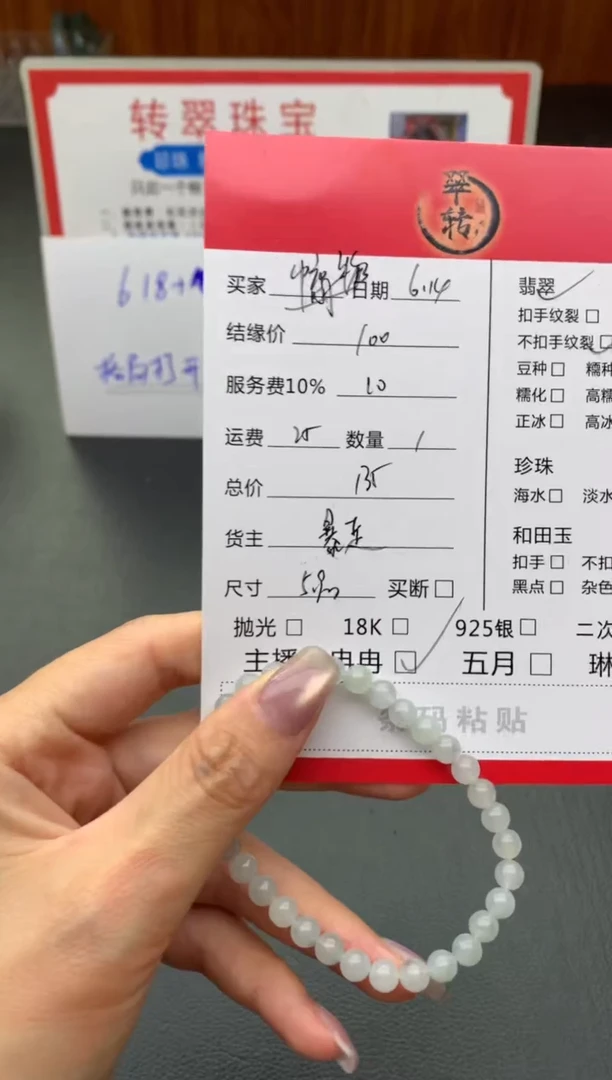 转翠珠宝
618
翠
转
买家 日期 6.14
结缘价 100
服务费10% 10
运费 25 数量 1
总价 135
货主
尺寸 买断
抛光 18K 925银 二次
主播 冉冉 五月 琳
条码粘贴
翡翠
扣手纹裂
不扣手纹裂
豆种 糯种
糯化 高糯
正冰 高冰
珍珠
海水 淡水
和田玉
扣手 不扣
黑点 杂色